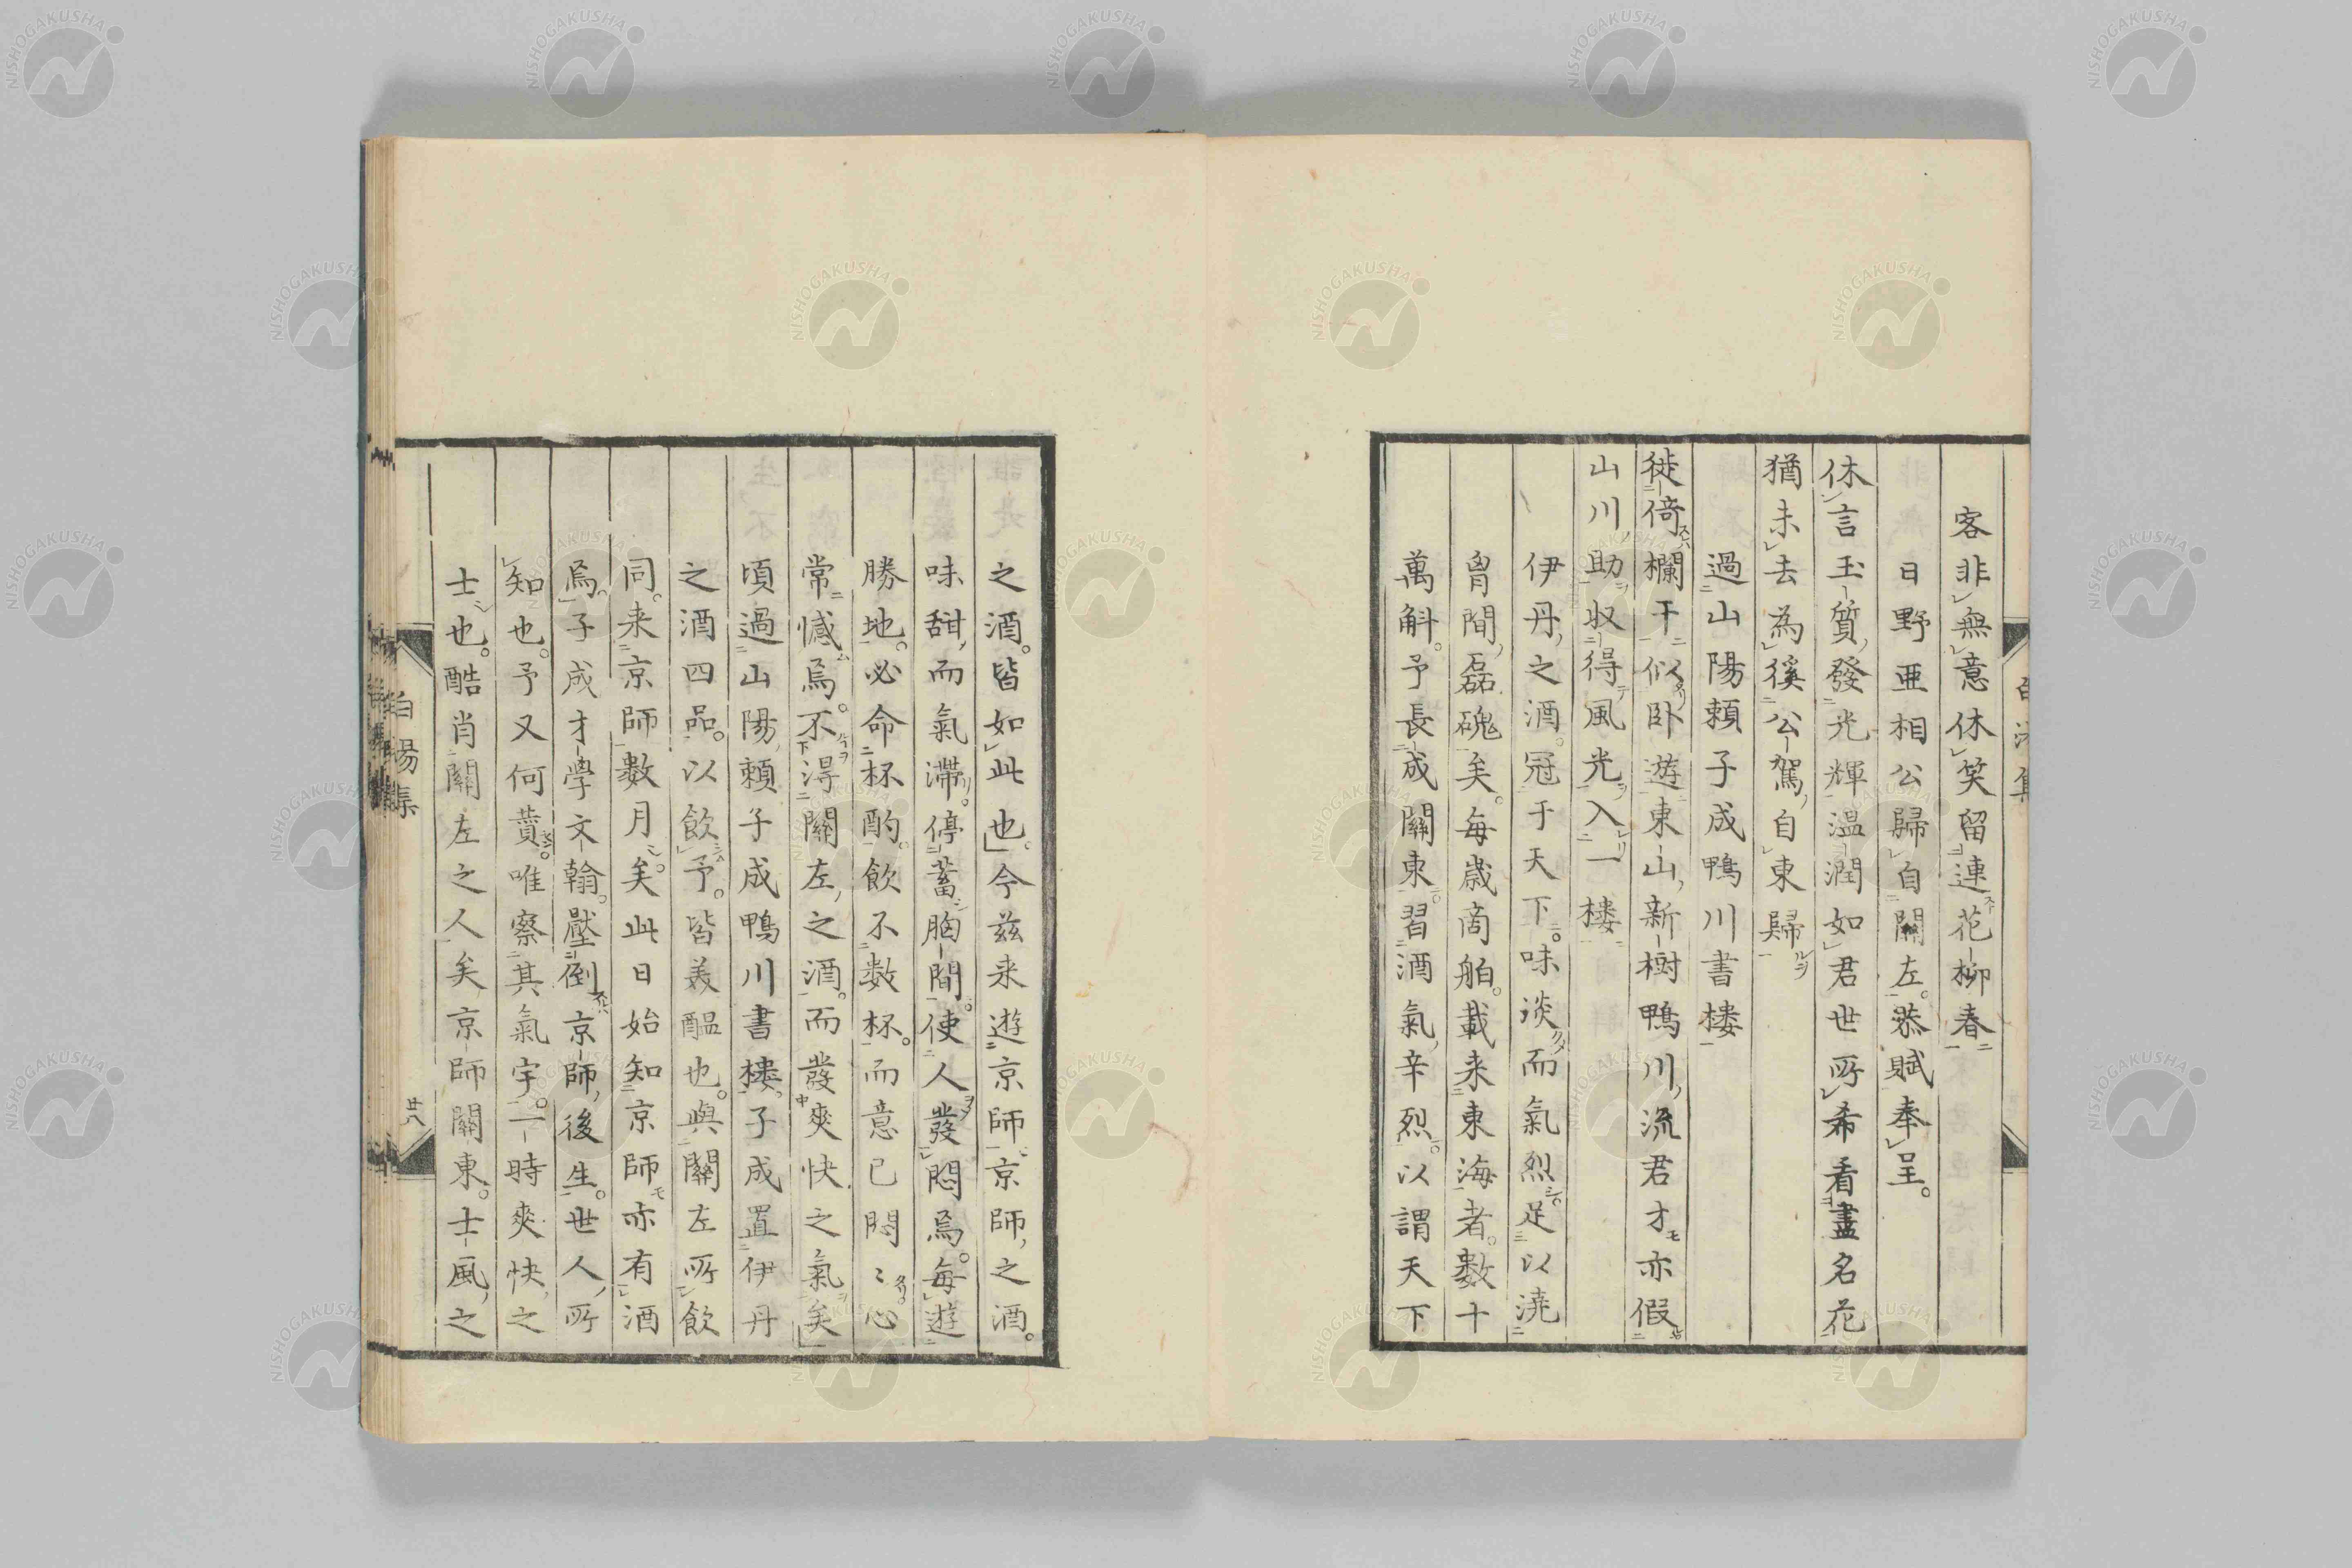 客非無意休笑留連花柳春
日野亜相公歸自關左。恭賦奉呈。
休言玉質發光輝温潤如君世所希看盡名花
猶未去為徯公駕自東歸
過山陽頼子成鴨川書楼
徙倚欄干似卧遊東山新樹鴨川流君才亦假
山川助収得風光入一楼
伊丹之酒。冠于天下。味淡而氣烈。足以澆
胷間磊磈矣。毎歳商舶。載来東海者。数十
萬斛。予長成關東。習酒氣辛烈。以謂天下
之酒。皆如此也。今茲来遊京師。京師之酒。
味甜而氣滯。停蓄胸間。使人發悶焉。毎遊
勝地。必命杯酌。飲不数杯。而意已悶〻心
常憾焉。不得關左之酒。而發爽快之氣矣
頃過山陽頼子成鴨川書楼。子成置伊丹
之酒四品。以飲予。皆美醞也。與關左所飲
同。来京師数月矣。此日始知京師亦有酒
焉。子成才學文翰。壓倒京師後生。世人所
知也。予又何贅。唯察其氣宇。一時爽快之
士也。酷肖關左之人矣京師關東。士風之
白湯集
廿八
NISHOGAKUSHA